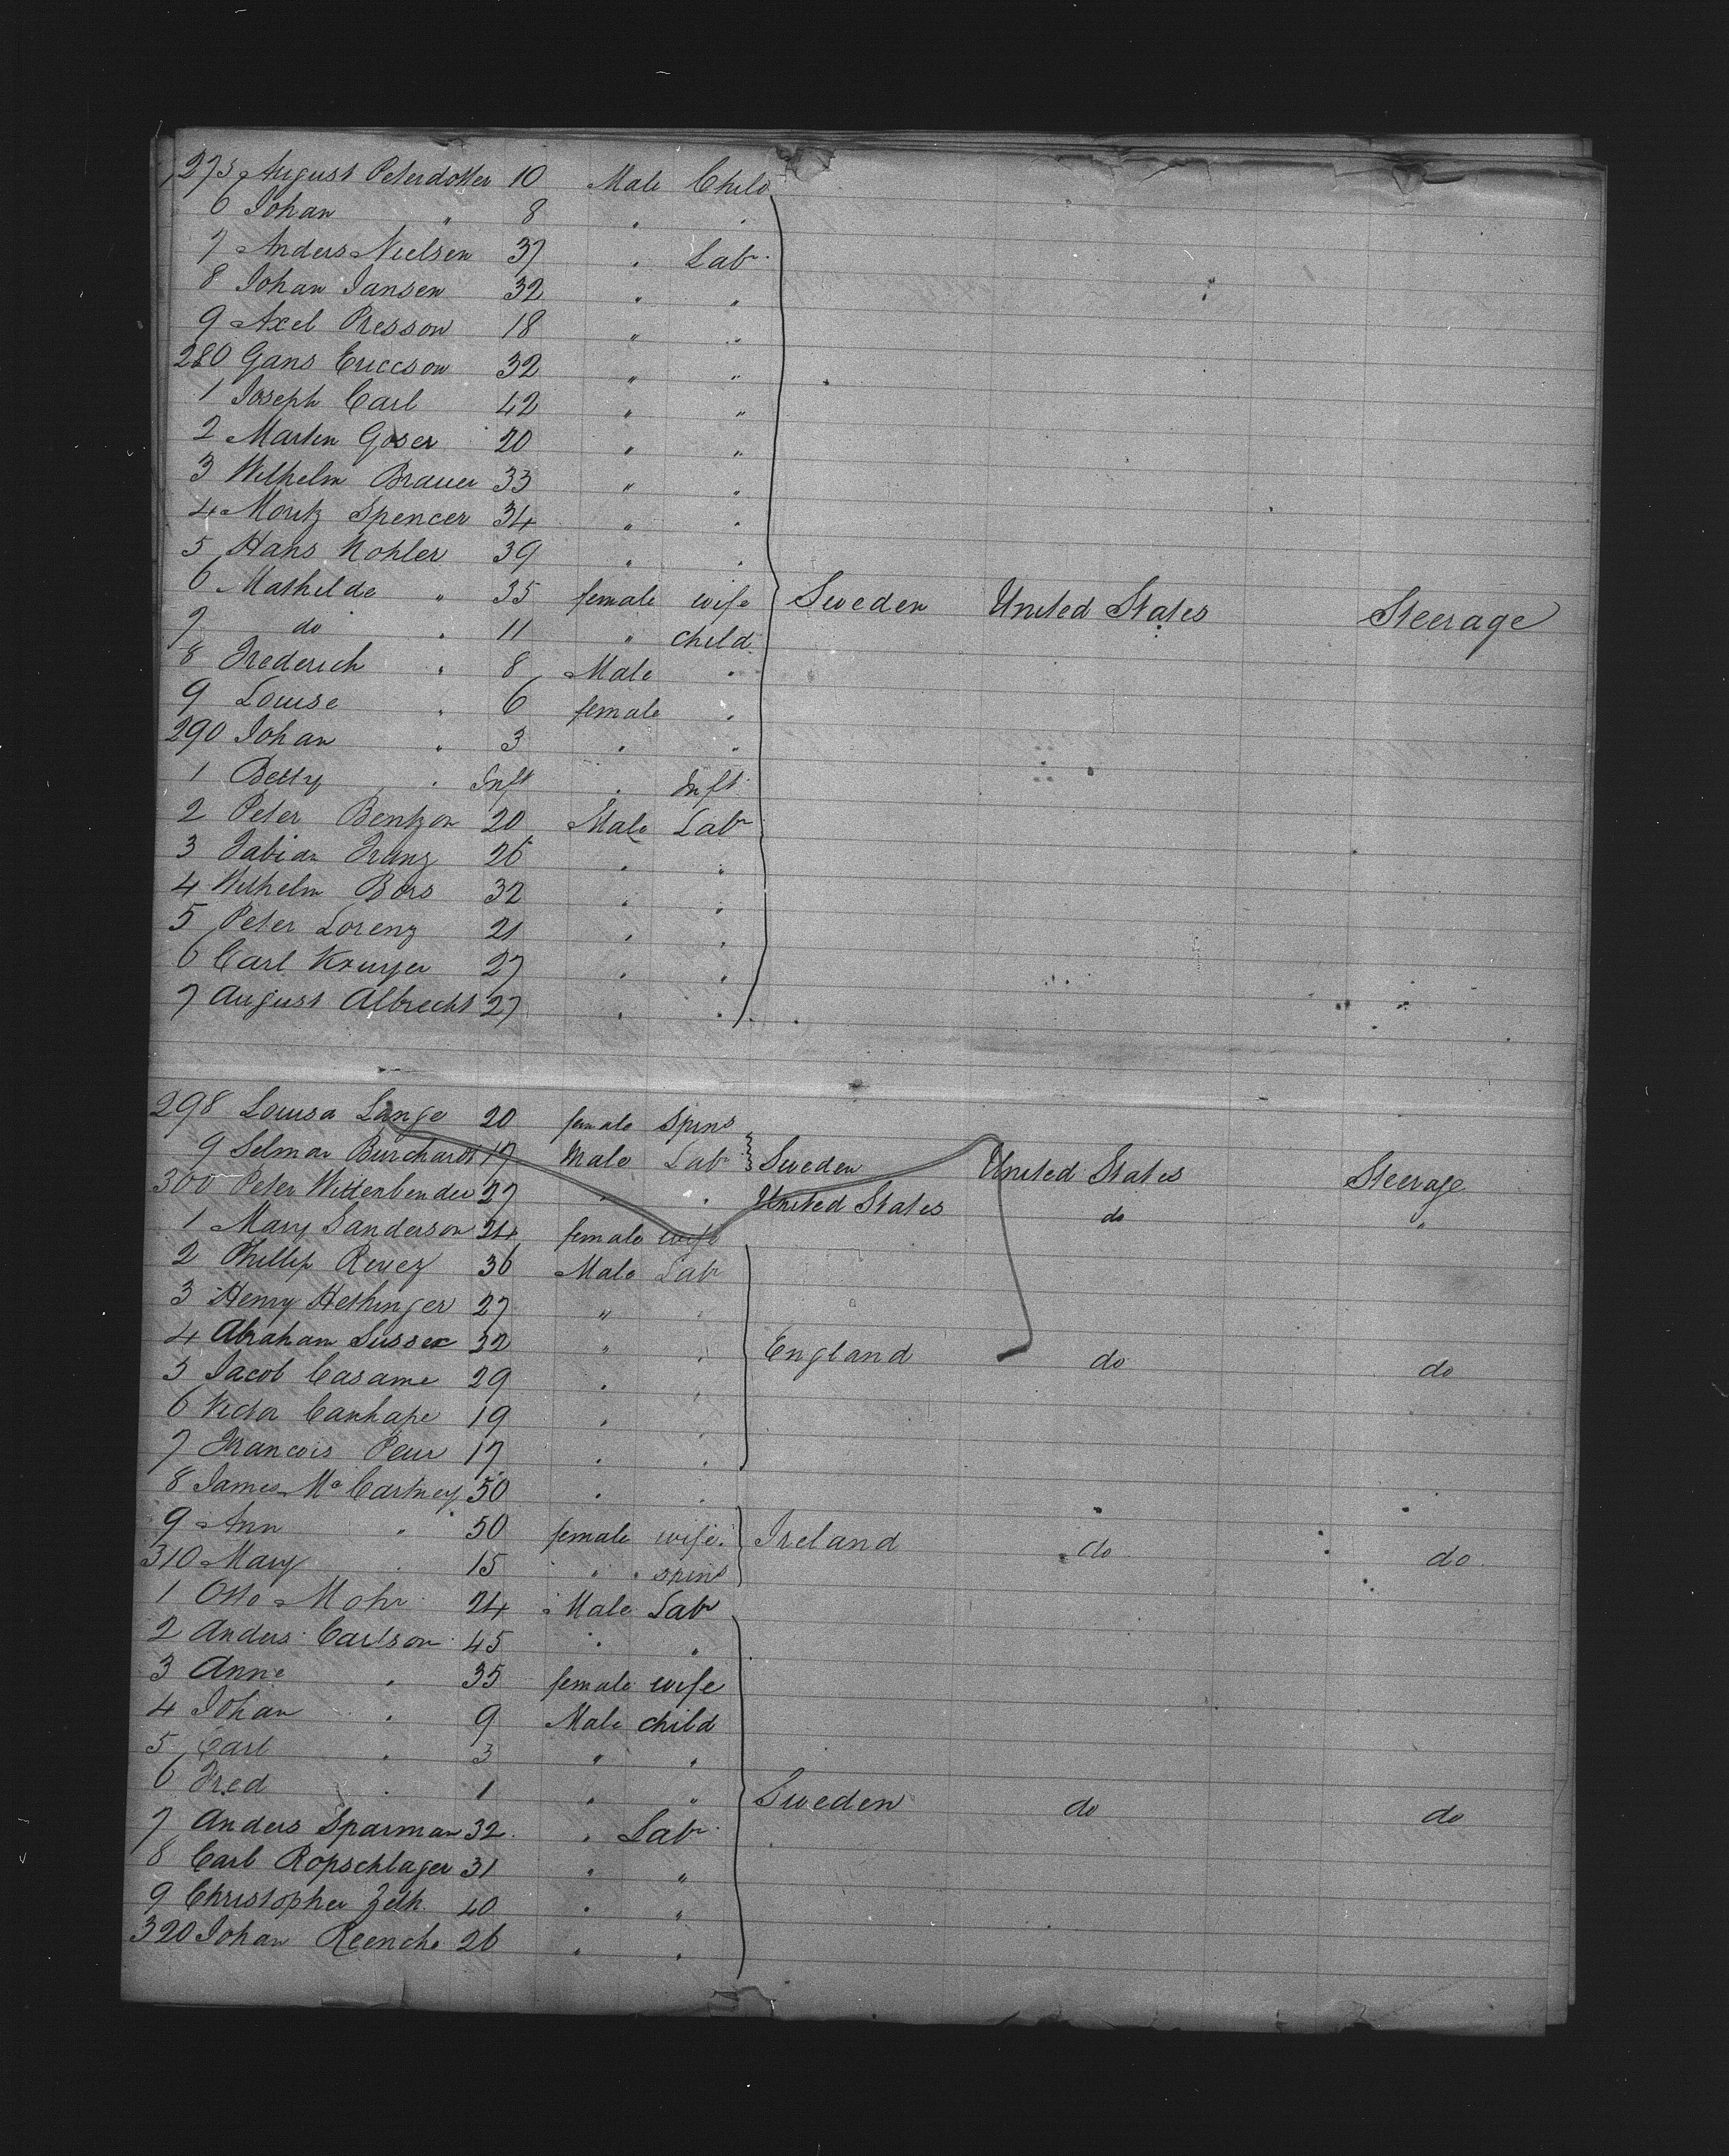 275 August Peterdotter 10 Male Child
6 Johan " 8 " "
7 Anders Nielsen 37 " Lab
8 Johan Jansen 32 " "
9 Axel Presson 18 " "
280 Gans Ericcson 32 " "
1 Joseph Carl 42 " "
2 Martin Goser 20 " "
3 Wilhelm Brauer 33 " "
4 Moritz Spencer 34 " "
5 Hans Kohler 39 " "
6 Mathilde " 35 female wife Sweden United States Steerage
7 do " 11 " child
8 Frederich " 8 Male "
9 Louise " 6 female "
290 Johan " 3 " "
1 Betty " Inft " Inft
2 Peter Bentzon 20 Male Lab
3 Fabian Franz 26 " "
4 Wilhelm Bors 32 " "
5 Peter Lorenz 21 " "
6 Carl Kruger 27 " "
7 August Albrecht 27 " "
298 Louisa Lange 20 female spins
9 Selmar Burchardt 17 Male Lab Sweden United States Steerage
300 Peter Wittenbender 27 " " United States do "
1 Mary Sanderson 24 female wife
2 Phillip 36 Male Lab
3 Henry Hethinger 27 " "
4 Abraham Sussex 32 " " England do do
5 Jacob Casame 29 " "
6 Victor Canhape 19 " "
7 Francois 17 " "
8 James McCartney 50 " "
9 Ann " 50 female wife Ireland do do
310 Mary " 15 " spins
1 Otto Mohr 24 Male Lab
2 Anders Carlson 45 " "
3 Anne " 35 female wife
4 Johan " 9 Male child
5 Carl " 3 " "
6 Fred " 1 " " Sweden do do
7 Anders Sparman 32 " Lab
8 Carl Ropschlager 31 " "
9 Christopher Zeth 40 " "
320 Johan Reenche 26 " "